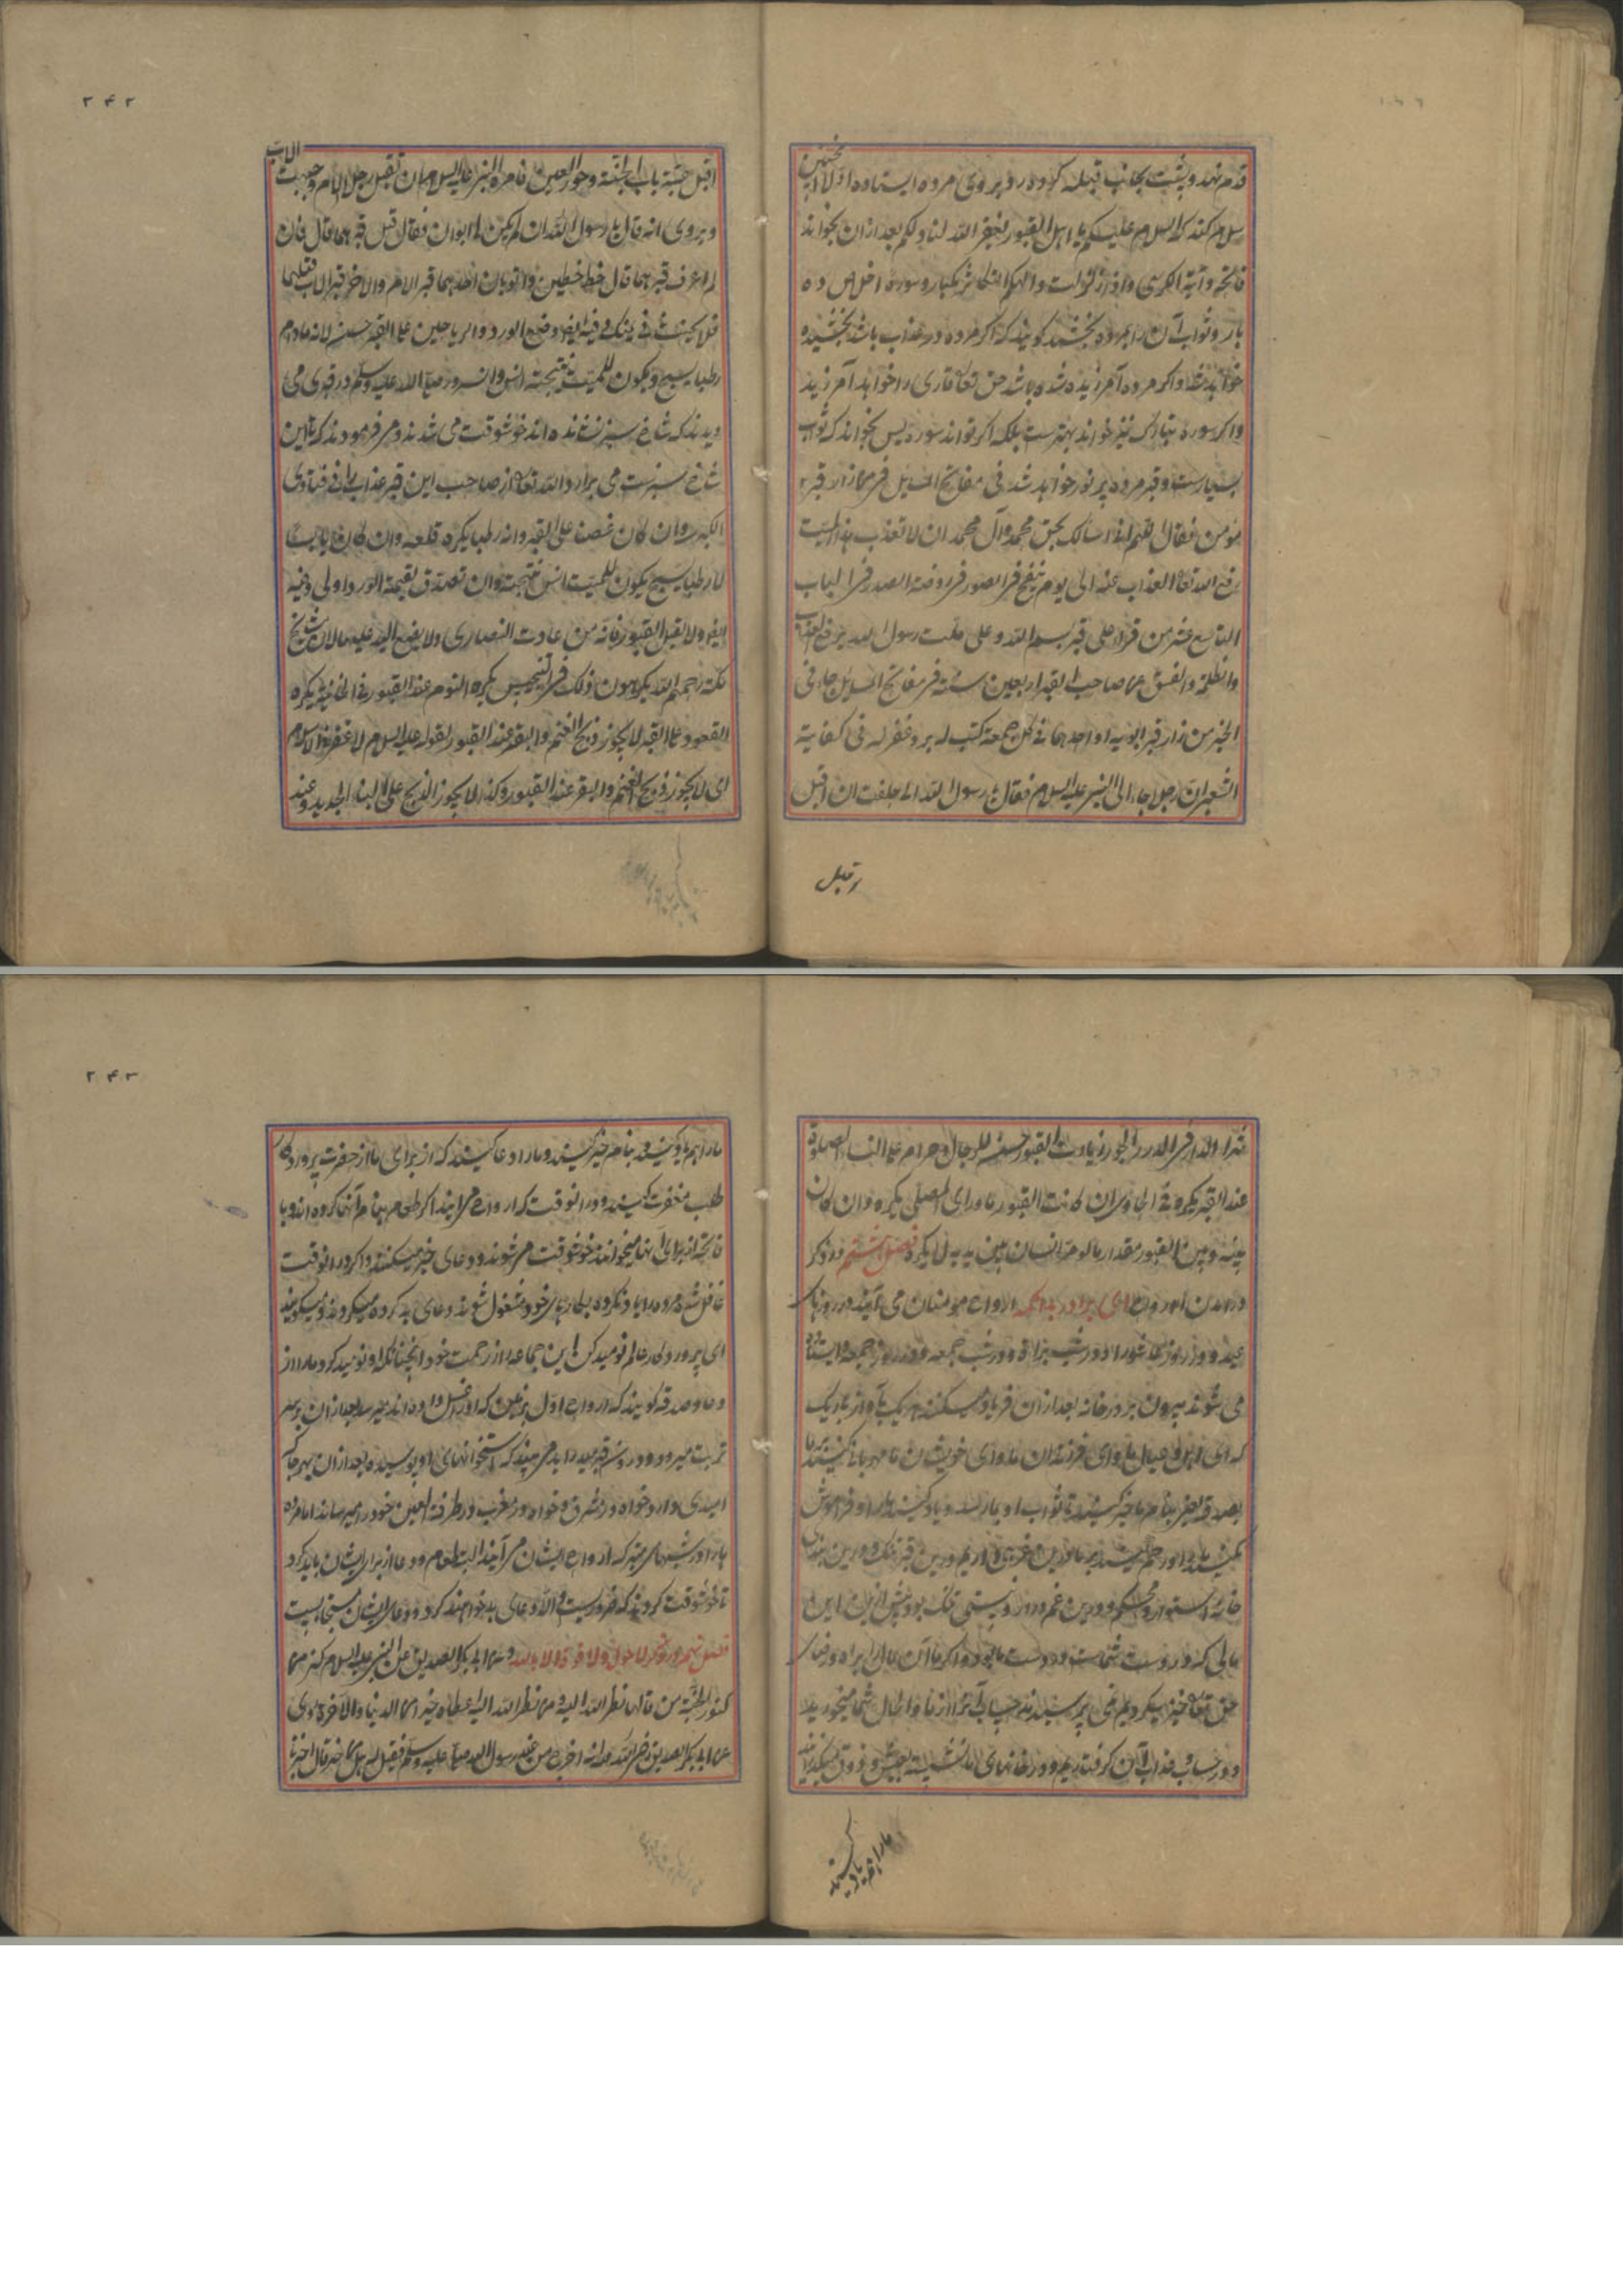 ۲۴۲
قدم نهد و پشت بجانب قبله کرده رو بروی مرده ایستاده اولا این چنین
سلام کند که السلام علیکم یا اهل القبور یغفر الله لنا ولکم بعد ازان بخواند
فاتحه و آیة الکرسی و اذا زلزلت و الهکم التکاثر یکبار و سوره اخلاص ده
بار و ثواب آن را بمرده بخشد کویند که اکر مرده در عذاب باشد بخشیده
خواهد شد و اکر مرده آمرزیده شده باشد حق تعالی قاری را خواهد آمرزید
و اکر سوره تبارک نیز خواند بهترست بلکه اکر تواند سوره یس بخواند که ثواب
بسیارست و قبر مرده پر نور خواهد شد فی مفاتیح المسایل من زار قبر
مؤمن فقال اللهم انی اسالک بحق محمد وآل محمد ان لا تعذب هذا المیت
رفع الله تعالی العذاب عنه الی یوم ینفخ فی الصور فی روضة الصدر فی الباب
التاسع عشر من قرا علی قبر بسم الله وعلی ملت رسول الله یرفع العذاب
والظلمة والضیق عن صاحب القبر اربعین سنة فی مفاتیح المسایل جاء فی
الخبر من زار قبر ابویه او احدهما فی کل جمعة کتب له بر وغفر له فی کفایة
الشعبی ان رجلا جاء الی النبی علیه السلام فقال یا رسول الله انی حلفت ان اقبل
اقبل عتبة باب الجنة وحور العین فامره النبی علیه السلام ان تقبل رجل الام وجبهة الاب
ویروی انه قال یا رسول الله ان لم یکن لی ابوان فقال قبل قبرهما قال فان
لم اعرف قبرهما قال خط خطین وانو بان احدهما قبر الام والاخر قبر الاب فقبلهما
فلا یحنث فی یمینک وفیه ایضا وضع الورد والریاحین علی القبر حسن لانه مادام
رطبا یسبح ویکون للمیت بتسبیحه انس وان سرور صلی الله علیه وسلم در قبری می
دیدند که شاخ سبز نشانده اند خوشوقت می شدند و می فرمودند که تا این
شاخ سبزست می بردارد الله تعالی از صاحب این قبر عذاب را فی فتاوی
الکبری وان کان غصن علی القبر وانه رطب یکره قلعه وان کان یابسا
لا رطبا یسبح یکون للمیت انس بتسبیحه وان تصدق بقیمة الورد اولی وفیه
ایضا ولا یقبل القبور فانه من عادت النصاری ولا یضع الید علیها لان مشایخ
مکة رحمهم الله یکرهون ذلک فی التجنیس یکره النوم عند القبور فی الخانیة یکره
القعود علی القبر لا یجوز ذبح الغنم والبقر عند القبور لقوله علیه السلام لا عقر فی الاسلام
ای لا یجوز ذبح الغنم والبقر عند القبور وکذا لا یجوز الذبح علی البناء الجدید وعند
اقبل
۲۴۳
شراء الدار فی الدرر الجور زیارت القبور حسنة للرجال وحرام علی النساء الصلوة
عند القبر یکره فی الحاوی ان کانت القبور ماورای المصلی یکره وان کان
بینه وبین القبور مقدار ما لو مر انسان بین یدیه لا یکره فصل هشتم در ذکر
در آمدن ارواح ای برادر بدانکه ارواح مومنان می آیند در روزهای
عید و در روز عاشورا و در شب براة و در شب جمعه و در روز جمعه و ایستاده
می شوند بیرون بر در خانه بعد ازان فریاد میکنند هر یک بآواز باریک
که ای اهل و عیال ما و ای فرزندان ما و ای خویشان ما مهربانی کنید بما
بصدقه بنام ما خیر کنید تا ثواب او بما رسد و یاد کنید ما را و فراموش
مکنید ما را و رحم کنید بر ما درین غریبی ما درین قبر تنک و درین
خانه استوار و محکم و درین غم دراز و سستی و پیش ازین این
مالی که در دست شماست در دست ما بود و اکر ما آن مال را براه و رضای
حق تعالی خیر میکردیم نمی پرسیدند حساب آنرا از ما و الحال شما میخورید
و در حساب و عذاب آن کرفتاریم و در خانهای ما نشسته بعیش و ذوق میکذرانید
ما را هم یاد کنید و بنام ما خیر کنید و ما را دعا کنید که از برای ما از حضرت پروردکار
طلب مغفرت کنید و در انوقت که ارواح می آیند اکر طعام بنام آنها کرده اند و یا
فاتحه از برای آنها میخوانند خوشوقت می شوند و دعای خیر میکنند و اکر در انوقت
غافل شده مرده را یاد نکرده بکارهای خود مشغول شوند دعای بد کرده میکردند و میکویند
ای پروردکار عالم نومید کن این جماعه را از رحمت خود آنچنانکه او نومید کرد ما را از
دعا و صدقه کویند که ارواح اول بزمین که او را غسل داده اند میرسد بعد ازان بر سر
تربت میرود و در قبر میدراید می بیند که استخوانهای او پوسیده بعد ازان بهر جا که
امیدی دارد خواه در مشرق و خواه در مغرب در طرفة العین خود را میرساند اما مرده
را در شبهای متبرکه ارواح ایشان می آیند البته طعام و دعا از برای ایشان باید کرد
تا خوشوقت کردند که ضرورست و الا دعای بد خواهند کرد و دعای ایشان مستجابست
فصل نهم در ذکر لا حول ولا قوة الا بالله وعن ابی بکر الصدیق عن النبی علیه السلام کنز من
کنوز الجنة من قالها نظر الله الیه ومن نظر الله الیه اعطاه خیر الدنیا والآخرة روی
عن ابی بکر الصدیق رضی الله عنه انه اخرج من عند رسول الله صلی الله علیه وسلم فقیل له هل من خبر قال اخبرنا
ما را هم یاد کنید